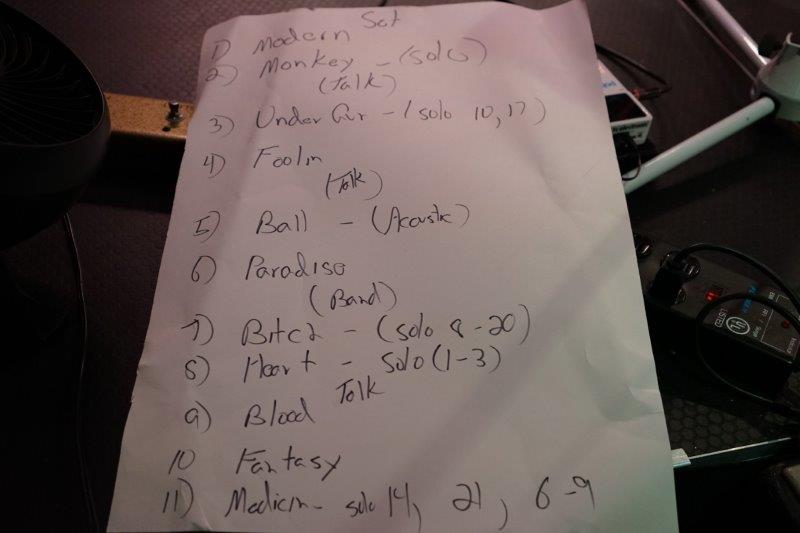 Set
1) Modern
2) Monkey - (solo)
(Talk)
3) Under Gun - (solo 10, 17)
4) Foolin
(Talk)
5) Ball - (Acoustic)
6) Paradise
(Band)
7) Bitch - (solo 8-20)
8) Heart - solo (1-3)
Talk
9) Blood
10 Fantasy
11) Medicin - solo 14, 21, 6-9
LISTED